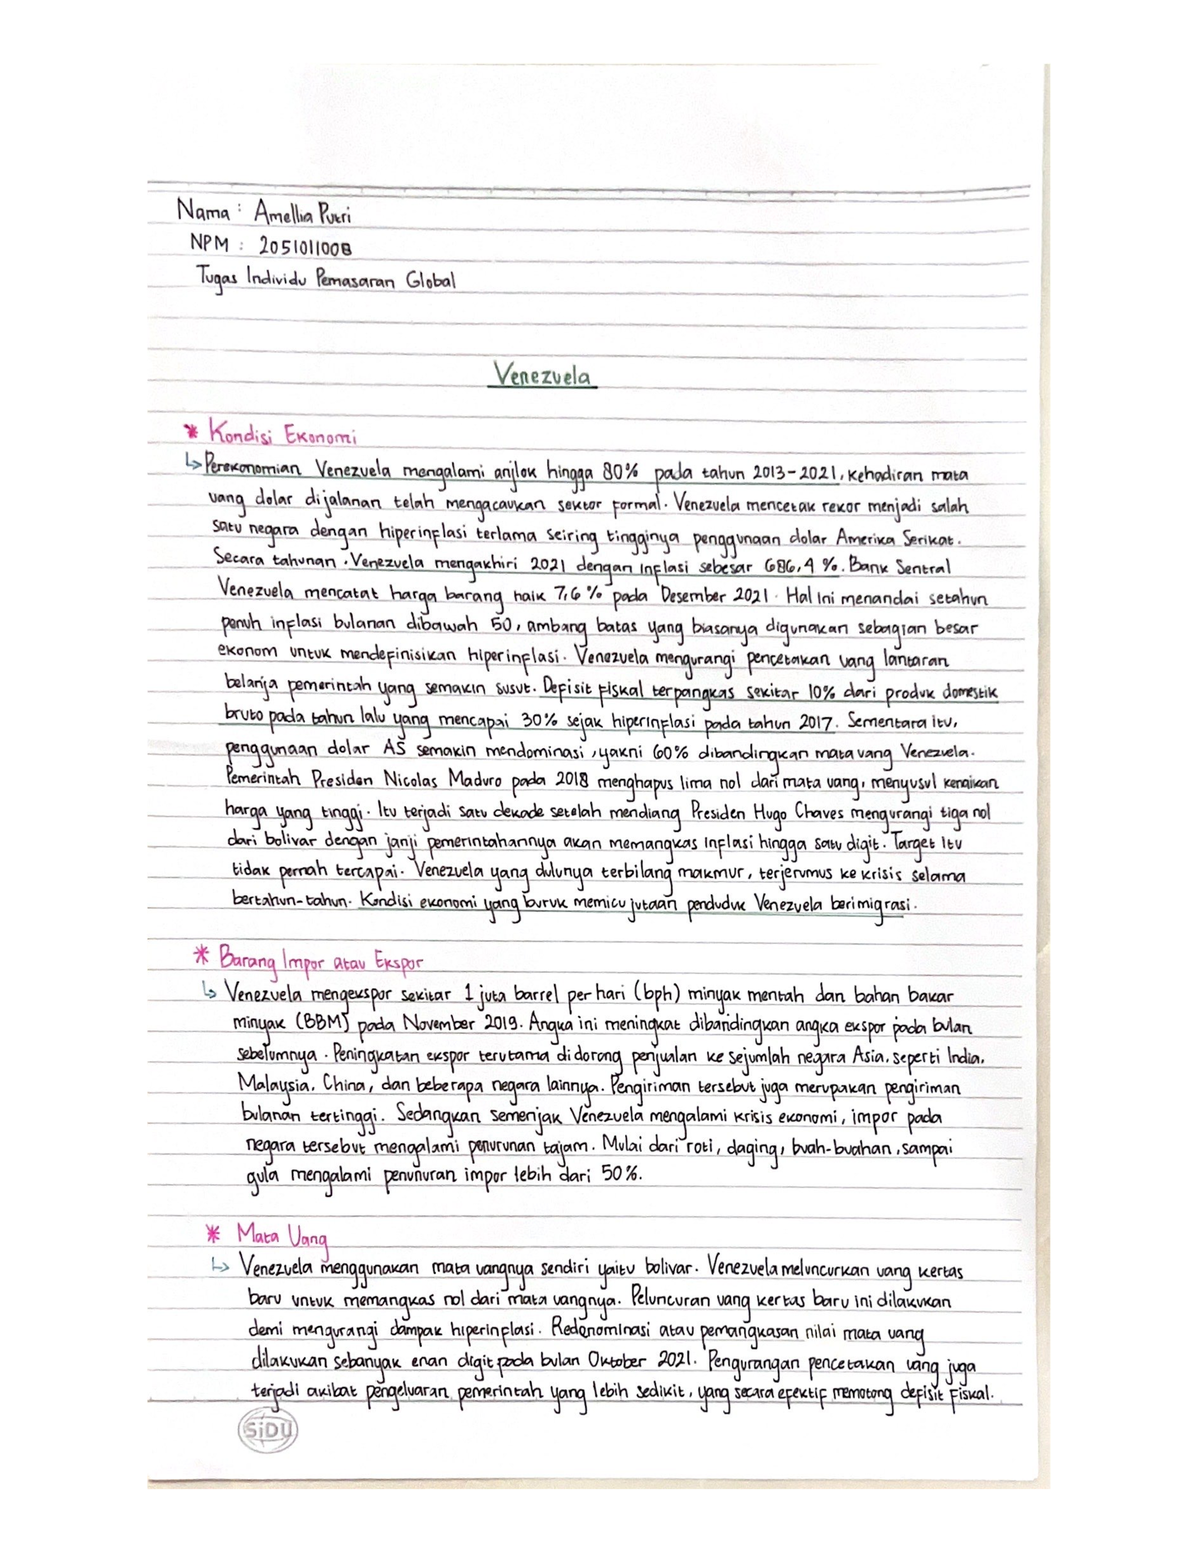 Nama : Amellia Putri
NPM : 2051011008
Tugas Individu Pemasaran Global
Venezuela
* Kondisi Ekonomi
↳ Perekonomian Venezuela mengalami anjlok hingga 80% pada tahun 2013-2021, kehadiran mata
uang dolar dijalanan telah mengacaukan sektor formal. Venezuela mencetak rekor menjadi salah
satu negara dengan hiperinflasi terlama seiring tingginya penggunaan dolar Amerika Serikat.
Secara tahunan. Venezuela mengakhiri 2021 dengan inflasi sebesar 686,4 %. Bank Sentral
Venezuela mencatat harga barang naik 7,6 % pada Desember 2021. Hal ini menandai setahun
penuh inflasi bulanan dibawah 50, ambang batas yang biasanya digunakan sebagian besar
ekonom untuk mendefinisikan hiperinflasi. Venezuela mengurangi pencetakan uang lantaran
belanja pemerintah yang semakin susut. Defisit fiskal terpangkas sekitar 10% dari produk domestik
bruto pada tahun lalu yang mencapai 30% sejak hiperinflasi pada tahun 2017. Sementara itu,
penggunaan dolar AS semakin mendominasi, yakni 60% dibandingkan mata uang Venezuela.
Pemerintah Presiden Nicolas Maduro pada 2018 menghapus lima nol dari mata uang, menyusul kenaikan
harga yang tinggi. Itu terjadi satu dekade setelah mendiang Presiden Hugo Chaves mengurangi tiga nol
dari bolivar dengan janji pemerintahannya akan memangkas inflasi hingga satu digit. Target itu
tidak pernah tercapai. Venezuela yang dulunya terbilang makmur, terjerumus ke krisis selama
bertahun-tahun. Kondisi ekonomi yang buruk memicu jutaan penduduk Venezuela berimigrasi.
* Barang Impor atau Ekspor
↳ Venezuela mengekspor sekitar 1 juta barrel per hari (bph) minyak mentah dan bahan bakar
minyak (BBM) pada November 2019. Angka ini meningkat dibandingkan angka ekspor pada bulan
sebelumnya. Peningkatan ekspor terutama didorong penjualan ke sejumlah negara Asia, seperti India,
Malaysia, China, dan beberapa negara lainnya. Pengiriman tersebut juga merupakan pengiriman
bulanan tertinggi. Sedangkan semenjak Venezuela mengalami krisis ekonomi, impor pada
negara tersebut mengalami penurunan tajam. Mulai dari roti, daging, buah-buahan, sampai
gula mengalami penunuran impor lebih dari 50%.
* Mata Uang
↳ Venezuela menggunakan mata uangnya sendiri yaitu bolivar. Venezuela meluncurkan uang kertas
baru untuk memangkas nol dari mata uangnya. Peluncuran uang kertas baru ini dilakukan
demi mengurangi dampak hiperinflasi. Redenominasi atau pemangkasan nilai mata uang
dilakukan sebanyak enan digit pada bulan Oktober 2021. Pengurangan pencetakan uang juga
terjadi akibat pengeluaran pemerintah yang lebih sedikit, yang secara efektif memotong defisit fiskal.
SiDU